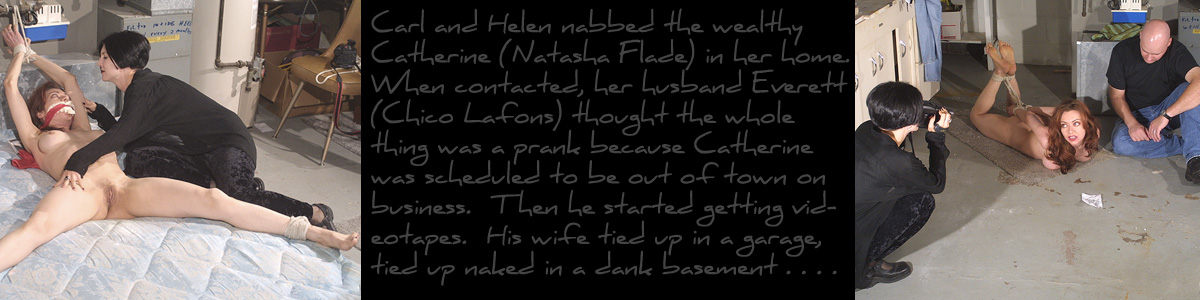 Carl and Helen nabbed the wealthy
Catherine (Natasha Flade) in her home.
When contacted, her husband Everett
(Chico Lafons) thought the whole
thing was a prank because Catherine
was scheduled to be out of town on
business. Then he started getting vid-
eotapes. His wife tied up in a garage,
tied up naked in a dank basement . . . .